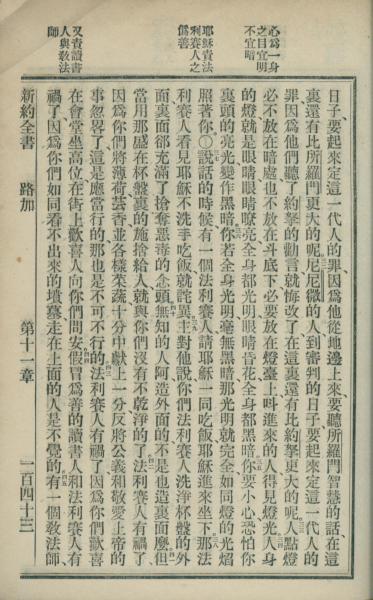 心爲一身
之目宜明
不宜暗
耶穌責法
利賽人之
僞善
又責讀書
人與敎法
師
日子要起來定這一代人的罪因爲他從地邊上來要聽所羅門智慧的話在這
裏還有比所羅門更大的呢尼尼微的人到審判的日子要起來定這一代人的
罪因爲他們聽了約拏的勸言就悔改了在這裏還有比約拏更大的呢人點燈
必不放在暗處也不放在斗底下必要放在燈臺上呌進來的人得見燈光人身
的燈就是眼睛眼睛瞭亮全身都光明眼睛昏花全身都黑暗你要小心恐怕你
裏頭的亮光變作黑暗你若全身光明毫無黑暗那光明就完全如同燈的光焰
照著你○說話的時候有一個法利賽人請耶穌一同吃飯耶穌進來坐下那法
利賽人看見耶穌不洗手吃飯就詫異主對他說你們法利賽人洗淨杯盤的外
面裏面郤充滿了搶奪惡毒的念頭無知的人阿造外面的不是也造裏面麼但
當用那盛在杯盤裏的施捨給人就與你們沒有不乾淨的了法利賽人有禍了
因爲你們將薄荷芸香並各樣菜蔬十分中獻上一分反將公義和敬愛上帝的
事忽畧了這是應當行的那也是不可不行的法利賽人有禍了因爲你們歡喜
在會堂坐高位在街上歡喜人向你們問安假冒爲善的讀書人和法利賽人有
禍了因爲你們如同看不出來的墳墓走在上面的人是不覺的有一個敎法師
新約全書 路加 第十一章 一百四十三